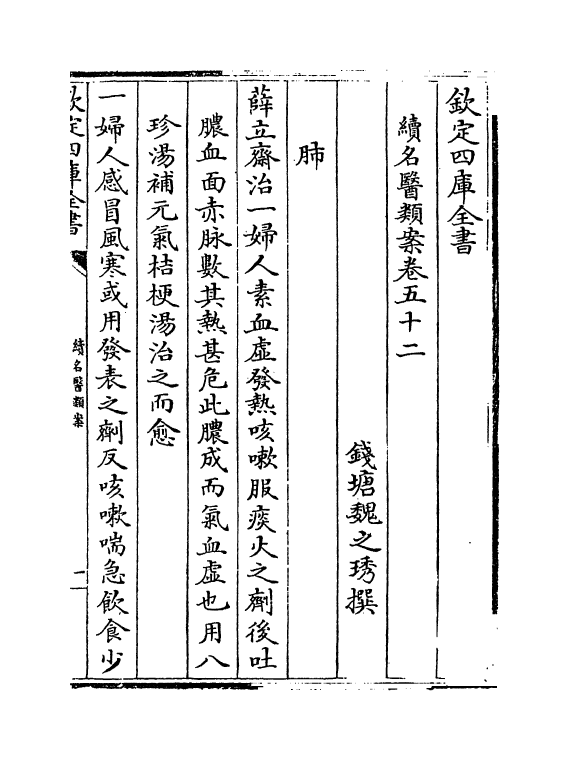 欽定四庫全書
續名醫類案卷五十二
錢塘魏之琇撰
肺
薛立齋治一婦人素血虛發熱咳嗽服痰火之劑後吐
膿血面赤脉數其熱甚危此膿成而氣血虛也用八
珍湯補元氣桔梗湯治之而愈
一婦人感冒風寒或用發表之劑反咳嗽喘急飲食少
欽定四庫全書
續名醫類案